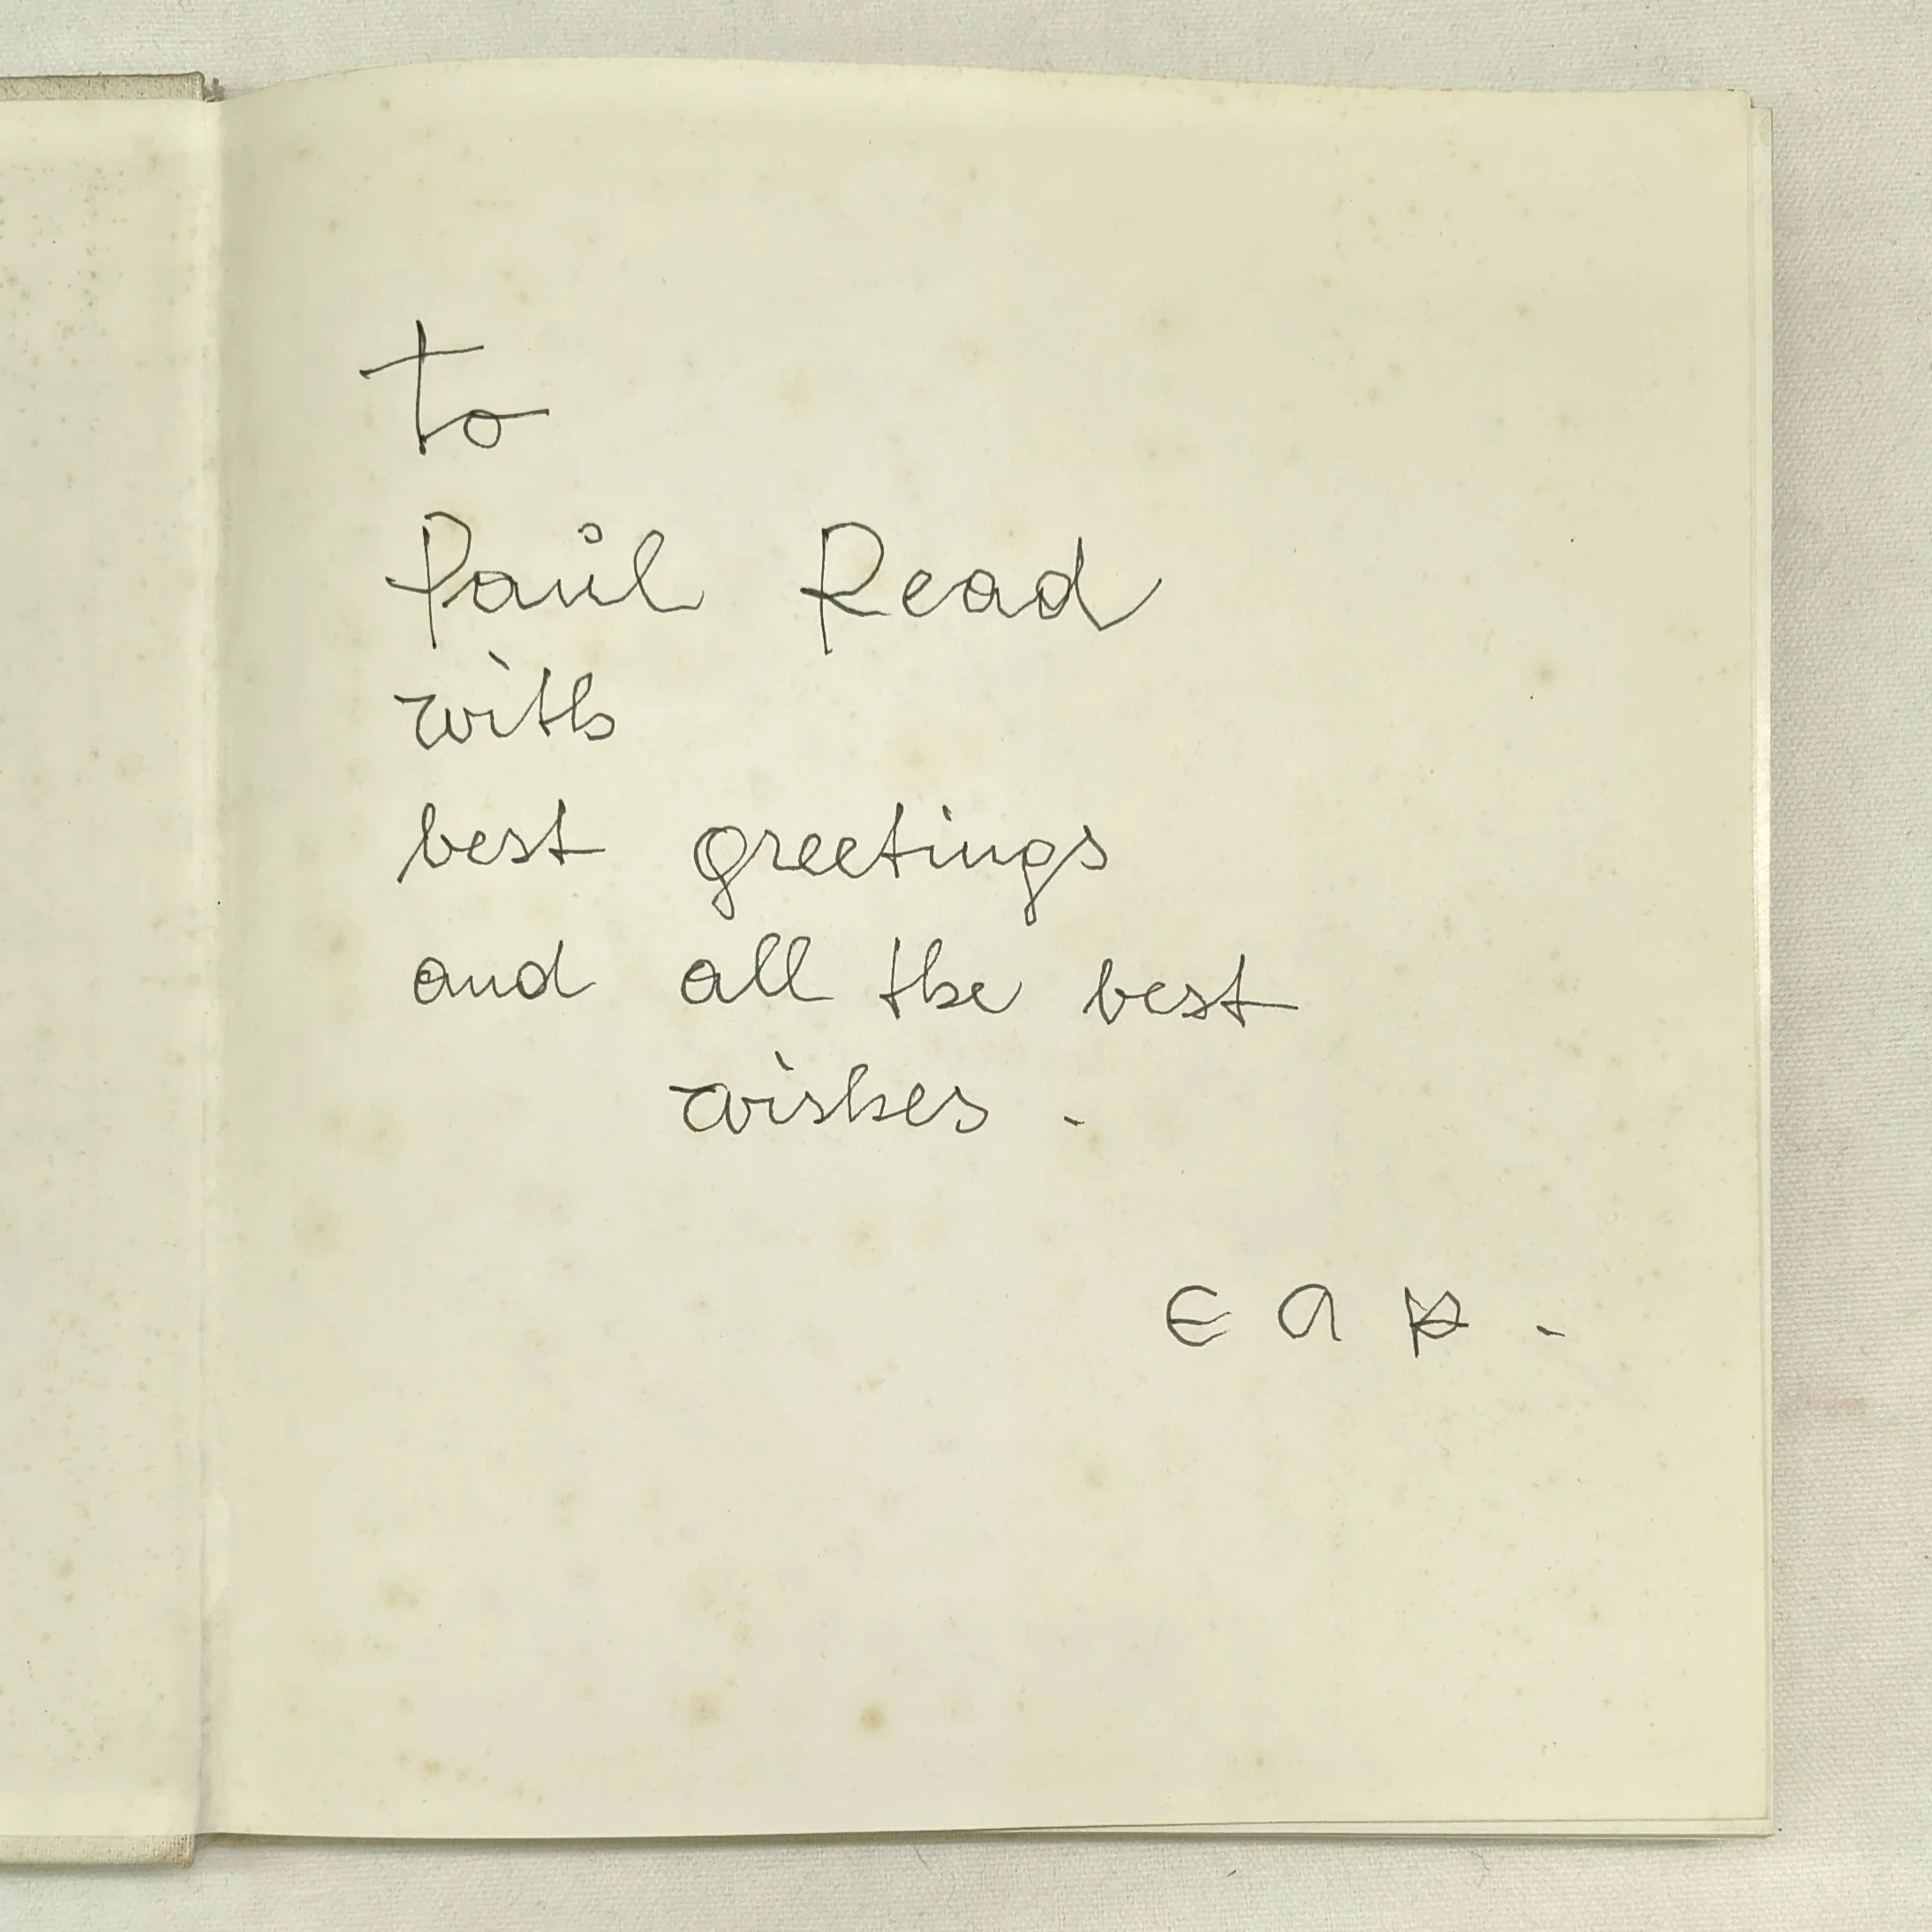 to
Paul Read
with
best greetings
and all the best
wishes.